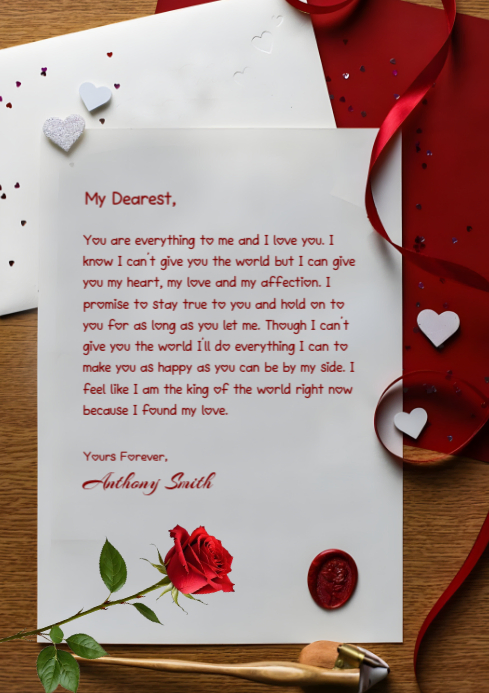 My Dearest,
You are everything to me and I love you. I
know I can't give you the world but I can give
you my heart, my love and my affection. I
promise to stay true to you and hold on to
you for as long as you let me. Though I can't
give you the world I'll do everything I can to
make you as happy as you can be by my side. I
feel like I am the king of the world right now
because I found my love.
Yours Forever,
Anthony Smith